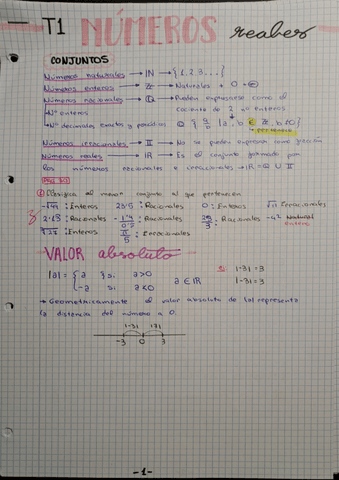 T1 NÚMEROS reales
CONJUNTOS
Números naturales → IN → {1, 2, 3, ...}
Números enteros → Z → Naturales + 0 + ⊖
Números racionales → Q → Pueden expresarse como el
cociente de 2 nº enteros
Nº enteros
Nº decimales exactos y Q { a/b | a, b ∈ Z, b ≠ 0 }
Números irracionales → II → No se pueden expresar como fracción
Números reales → IR → Es el conjunto formado por
los números racionales e irracionales → IR = Q U II
Clasifica al menor conjunto al que pertenecen
: Enteros : Racionales 0 : Enteros Irracionales
: Racionales : Racionales : Racionales Natural
: Enteros π/5 : Irracionales
VALOR absoluto
|a| = { a si a > 0
-a si a < 0 a ∈ IR
|-3| = 3
|-3| = 3
→ Geometricamente el valor absoluto de |a| representa
la distancia del número a 0.
|-3| |3|
-3 0 3
-1-